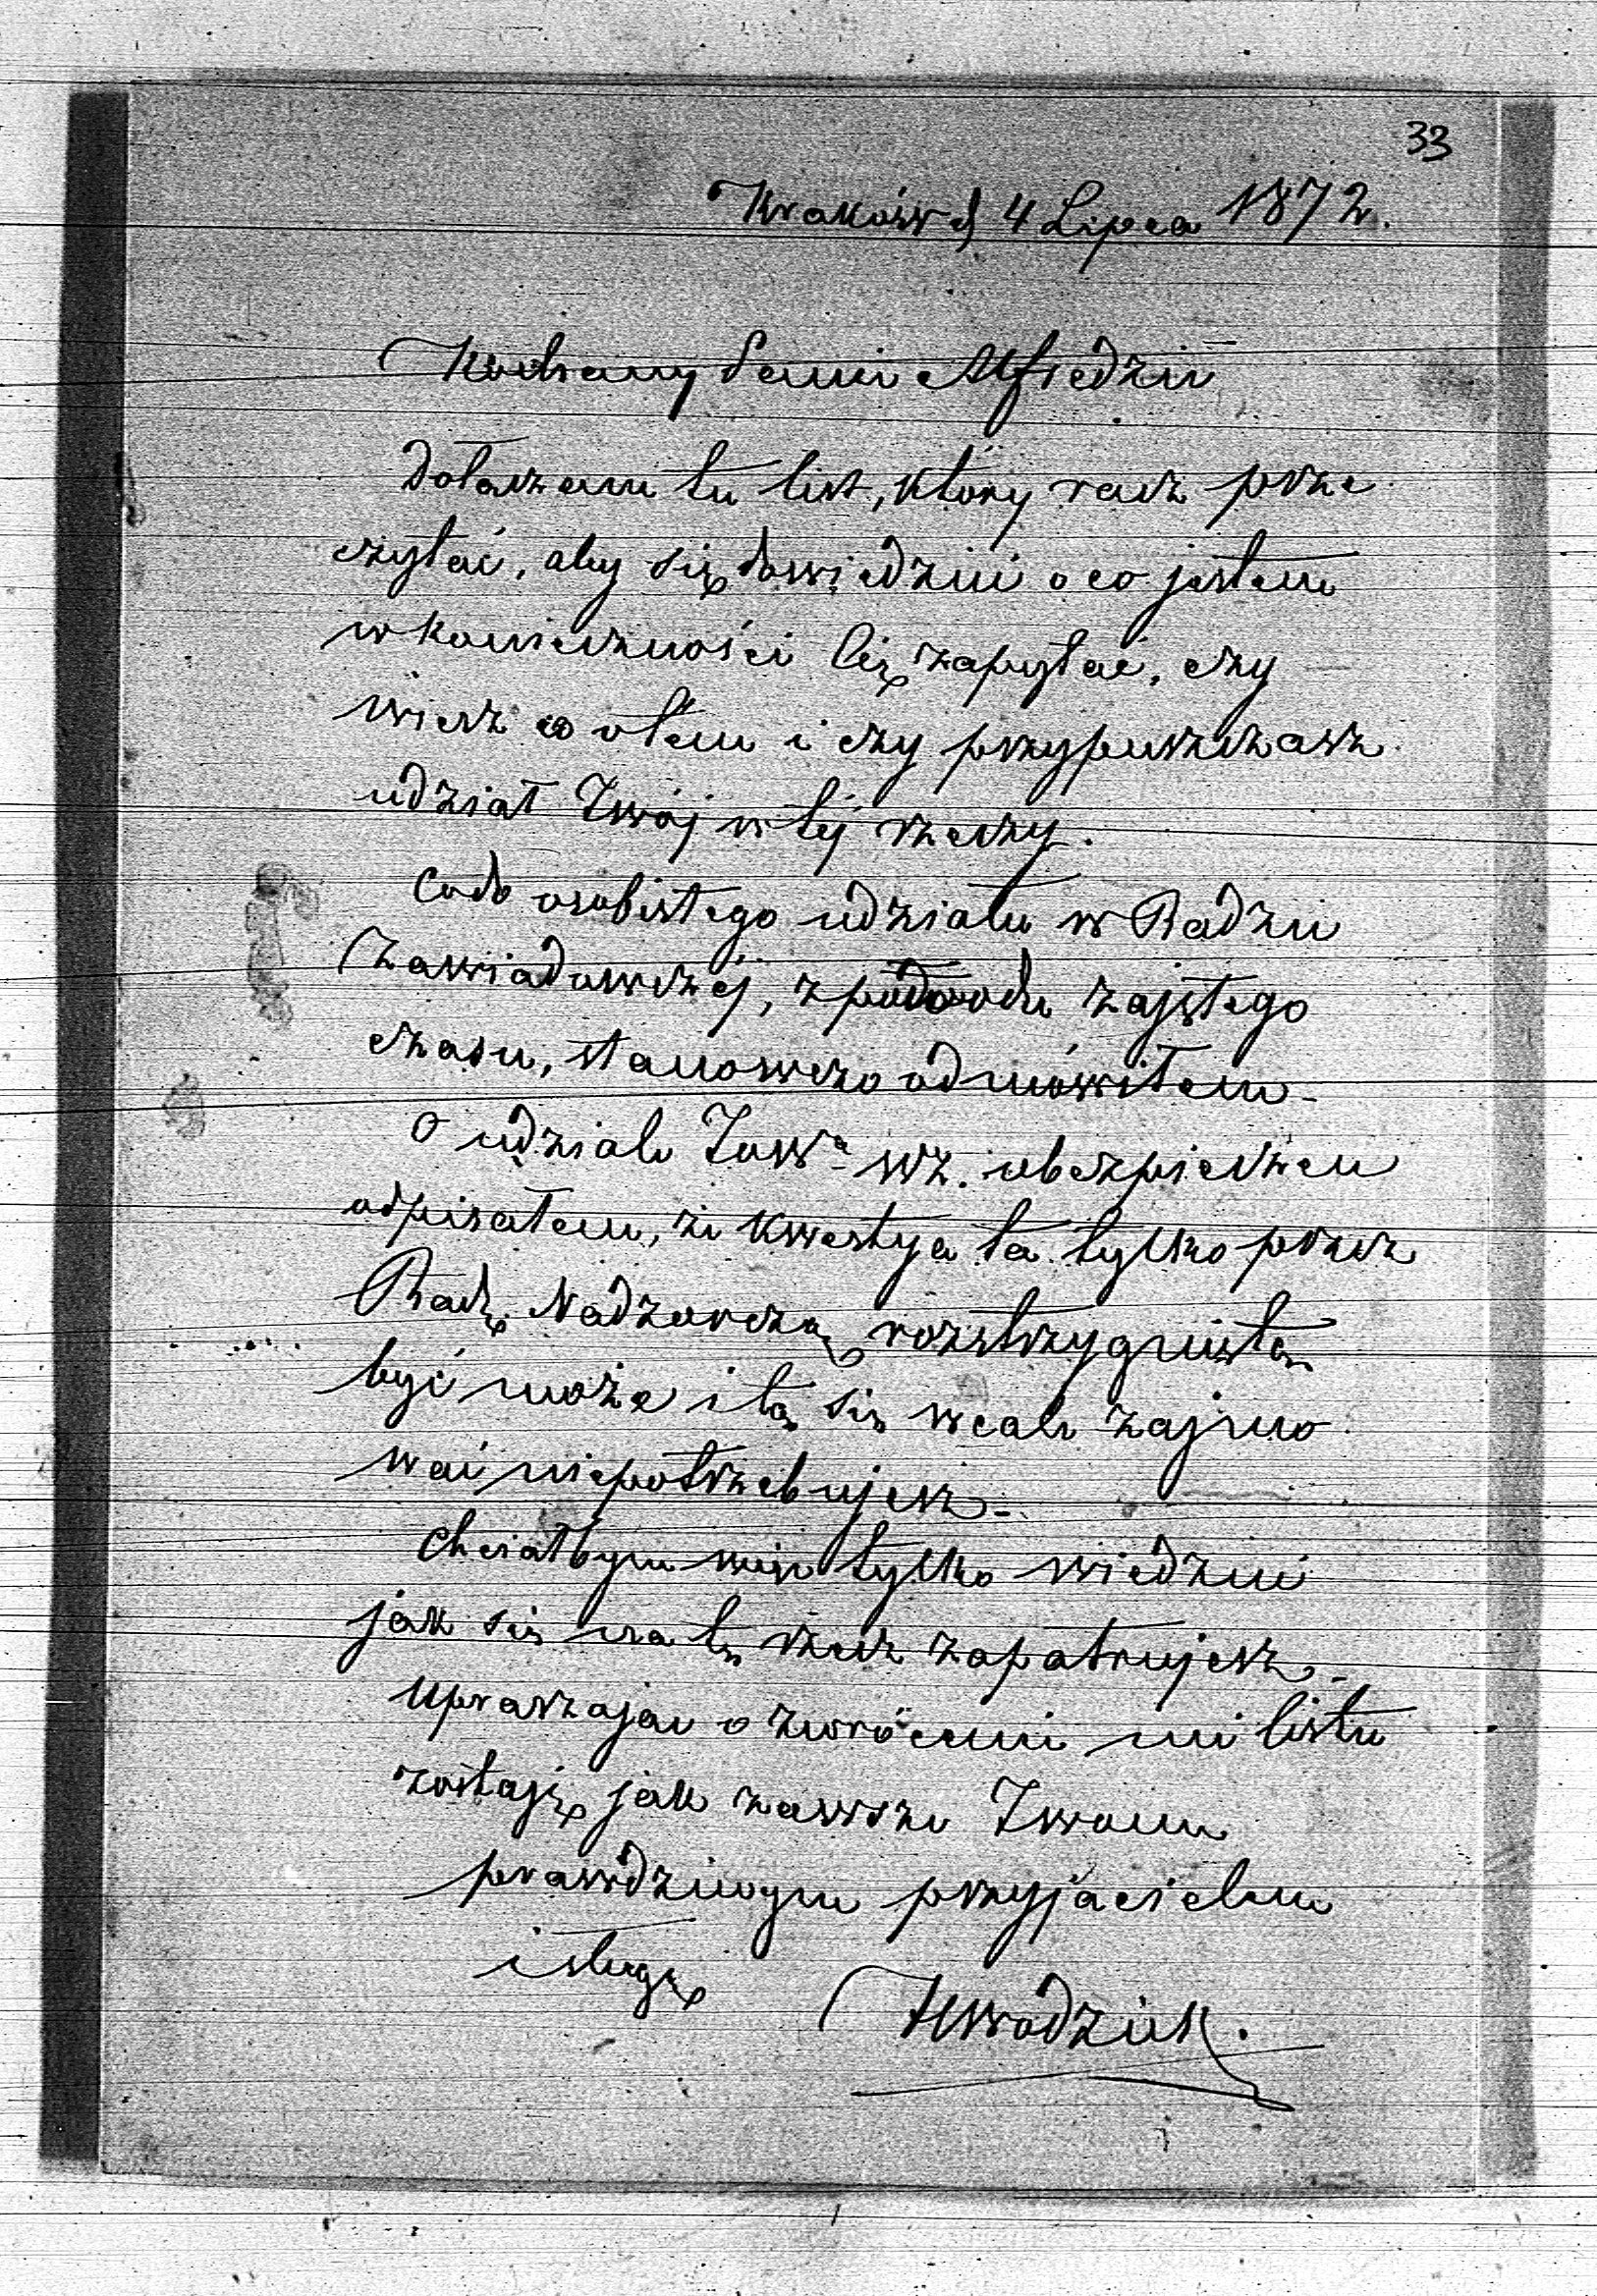 33
Kraków d 4 Lipca 1872.
Kochany Panie Alfredzie
Dołączam tu list, który racz prze
czytać, aby się dowiedzieć o co jestem
w konieczności Cię zapytać, czy
wiesz co o tem i czy przypuszczasz
udział Twój w téj rzeczy.
Co do osobistego udziału w Radzie
Zawiadowczéj, z powodu zajętego
czasu, stanowczo odmówiłem.
O udziale Towa wz. ubezpieczeń
odpisałem, że kwestya ta tylko przez
Radę Nadzorczą rozstrzygniętą
być może i tą się wcale zajmo
wać niepotrzebujesz.
Chciałbym więc tylko wiedzieć
jak się na tę rzecz zapatrujesz.
Upraszając o zwrócenie mi listu
zostaję jak zawsze Twoim
prawdziwym przyjacielem
i sługą
HWodzicki.